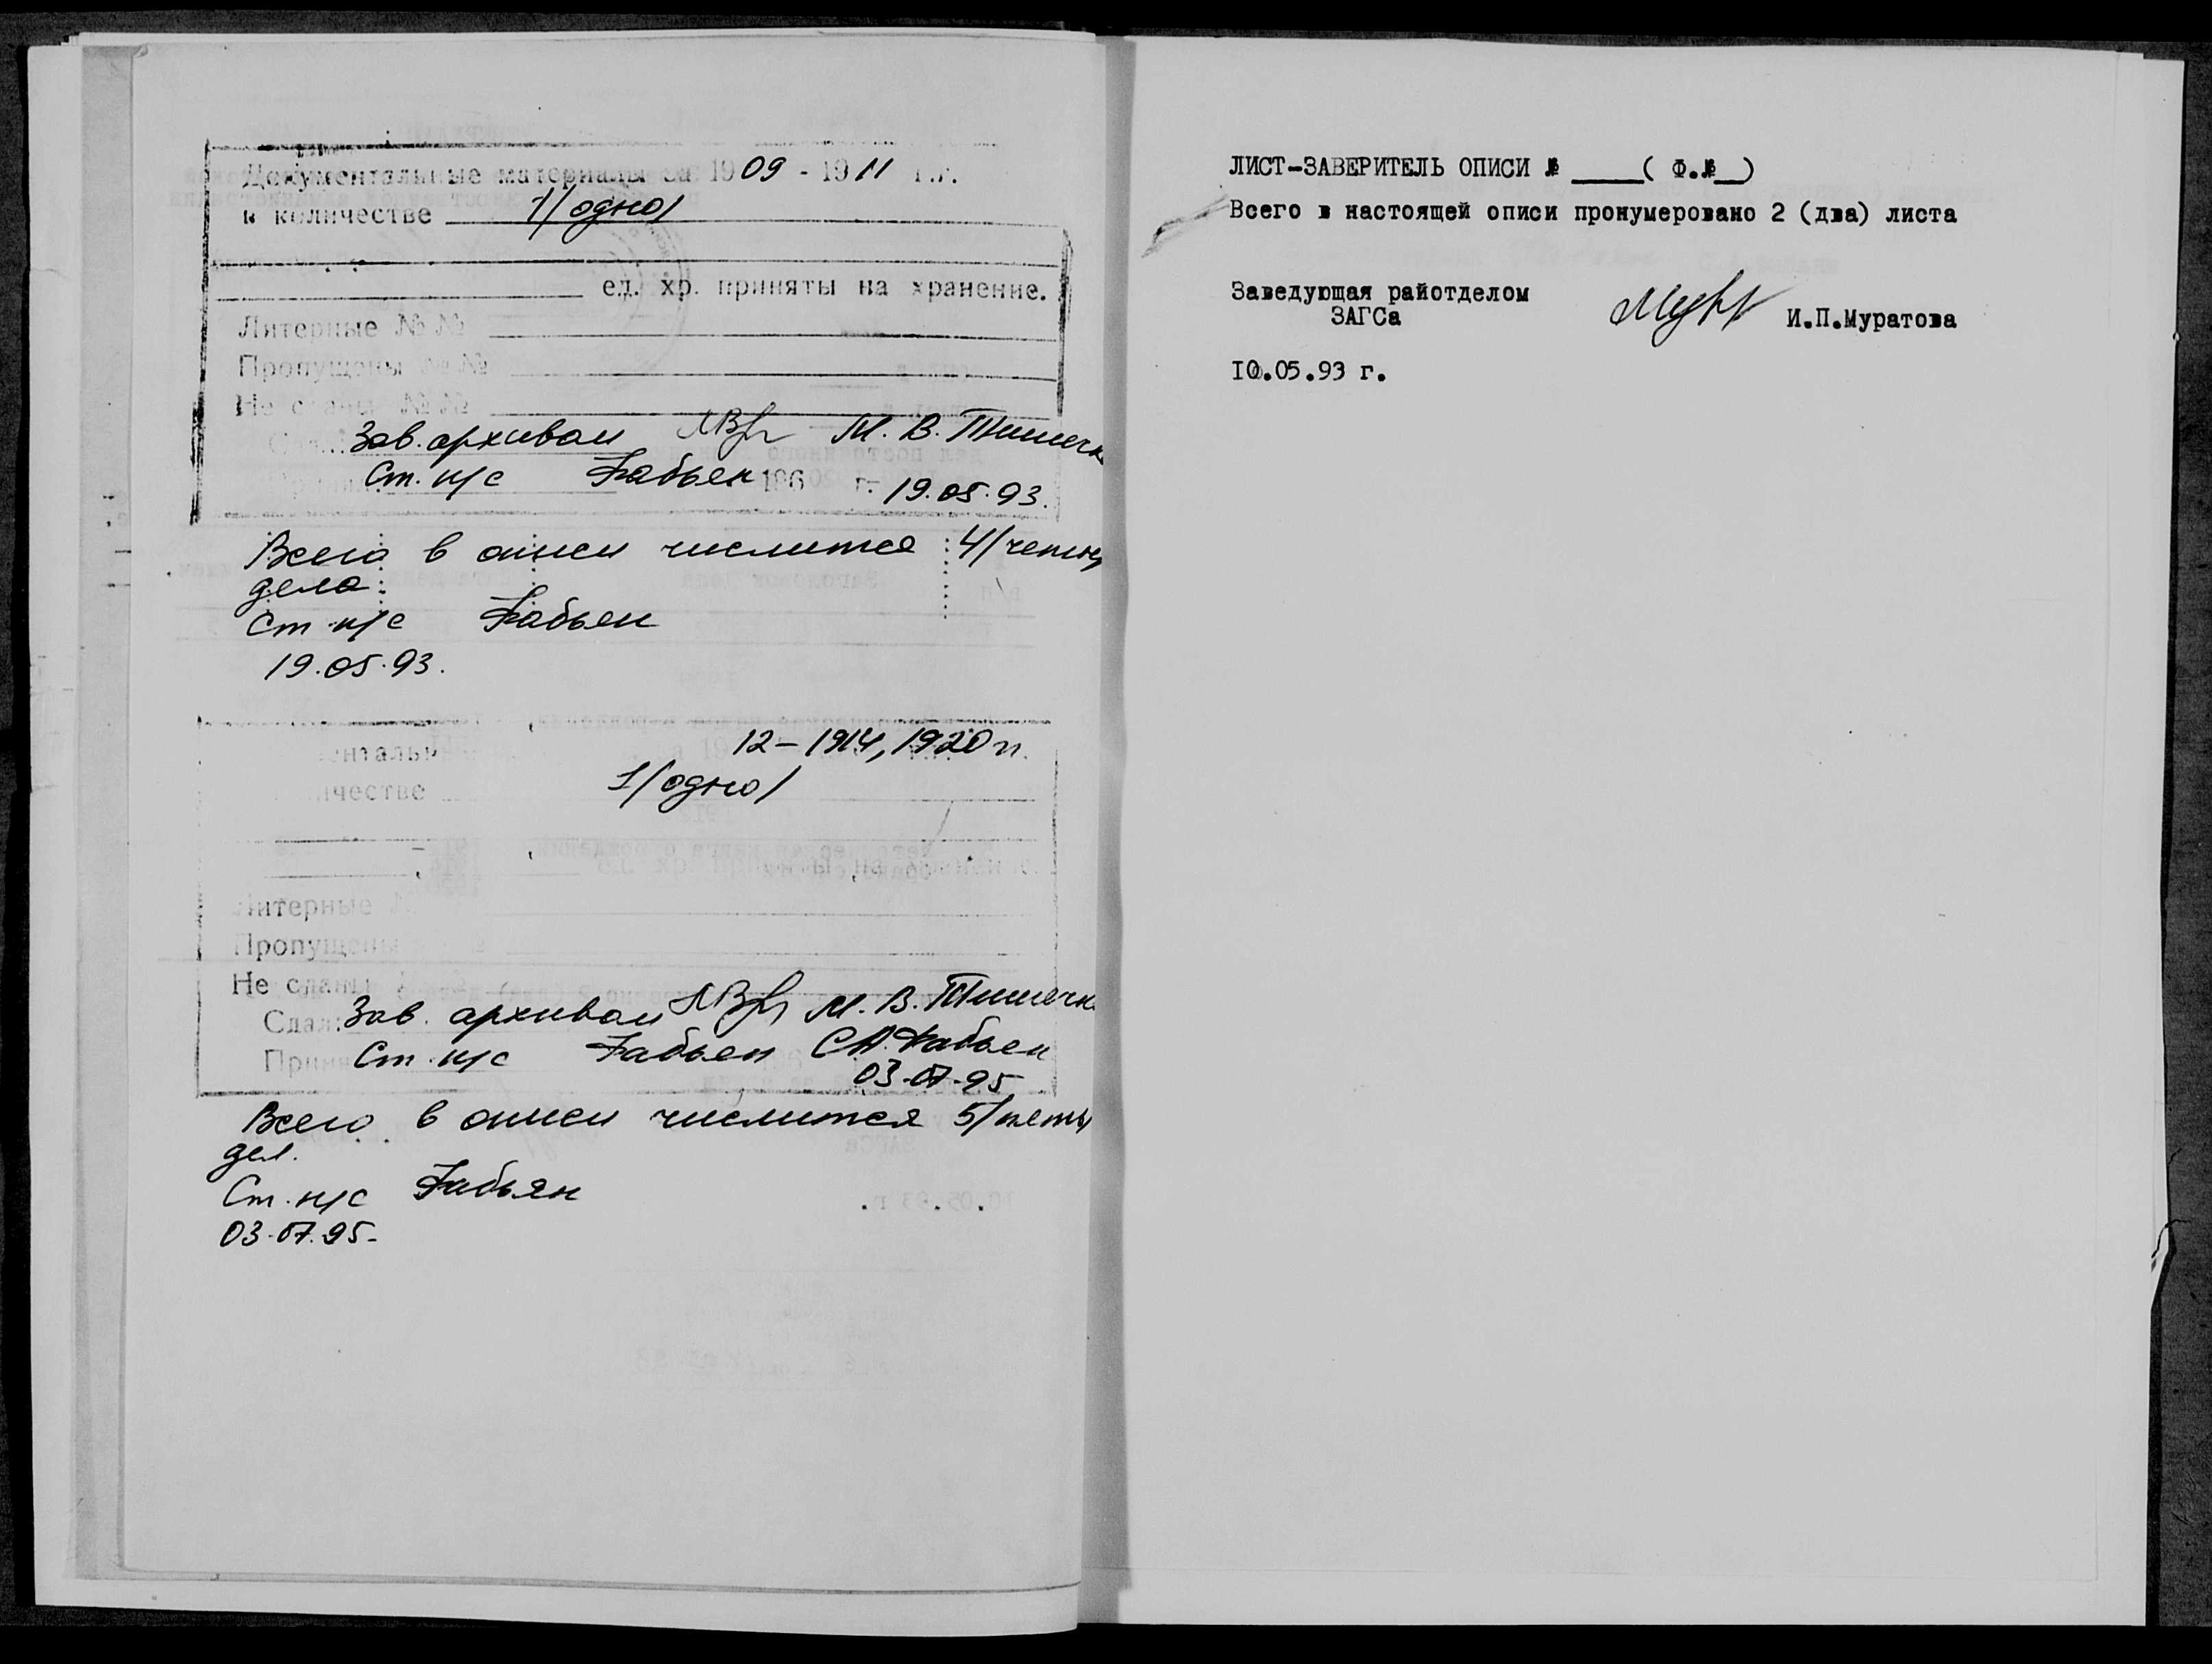 Документальные материалы за 1909 - 1911 г.г.
в количестве 1/одно/
ед. хр. приняты на хранение.
Литерные №№
Пропущены №№
Не сданы №№
Зав. архивом М. В.
Ст. н/с Фабьян 196 г. 19.05.93.
Всего в описи числится 4/четыре
дела.
Ст. н/с Фабьян
19.05.93.
12 – 1914, 1920 гг.
1/одно/
Литерные
Пропущены №
Не сданы
Сдал: Зав. архивом М. В.
Ст. н/с Фабьян С.А. Фабьян
03.07.95
Всего в описи числится 5/пять/
дел.
Ст. н/с Фабьян
03.07.95.
ЛИСТ-ЗАВЕРИТЕЛЬ ОПИСИ № ____( Ф.№__)
Всего в настоящей описи пронумеровано 2 (два) листа
Заведующая райотделом
ЗАГСа И.П.Муратова
10.05.93 г.